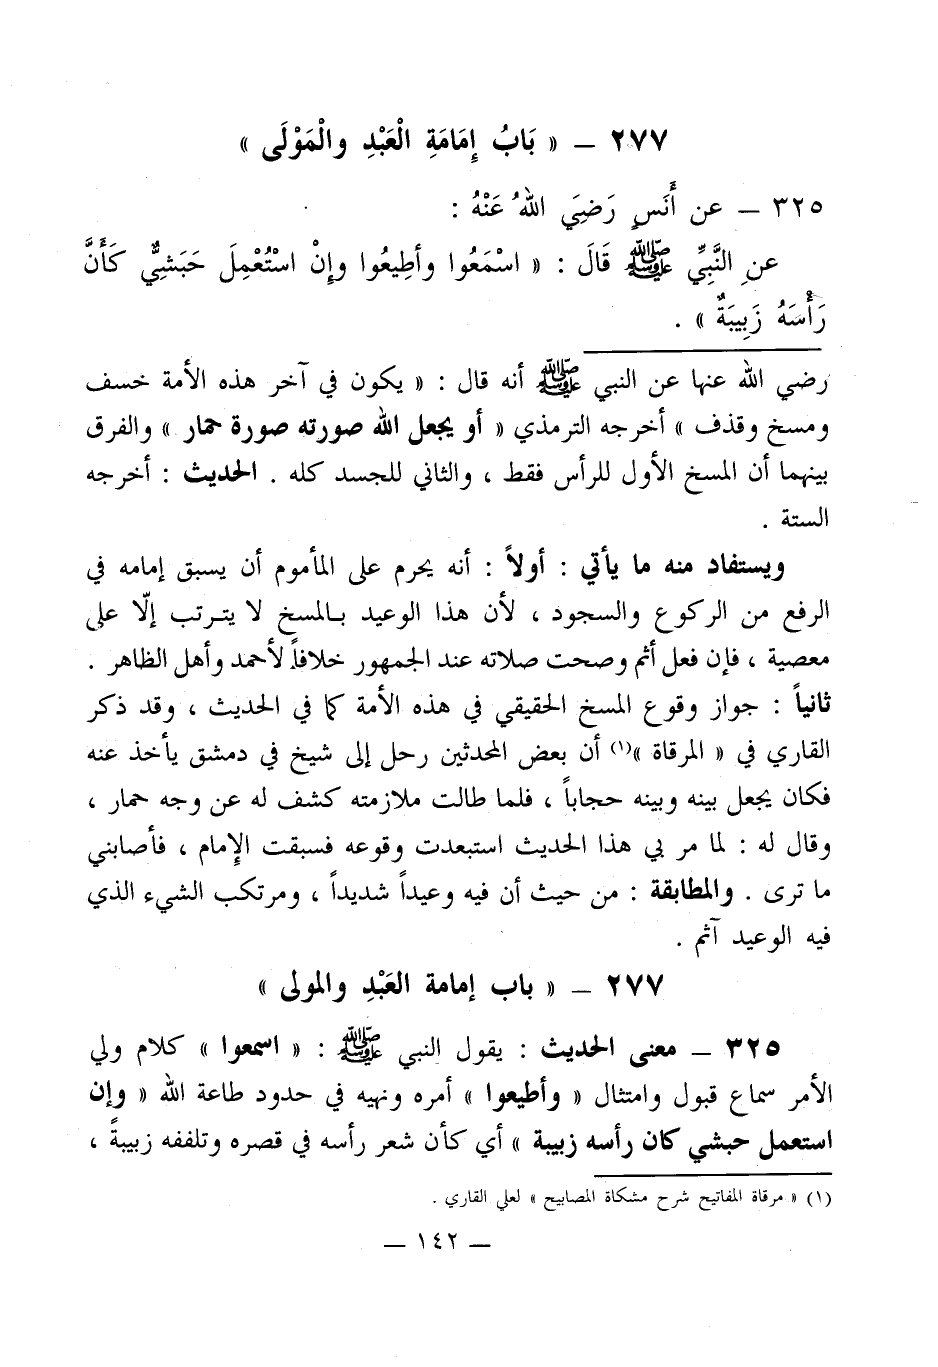 ٢٧٧ – « بَابُ إِمَامَةِ الْعَبْدِ والْمَوْلَى »
٣٢٥ – عن أَنَسٍ رَضِيَ اللهُ عَنْهُ :
عنِ النَّبِيِّ ﷺ قَالَ : « اسْمَعُوا وأَطِيعُوا وإِنْ اسْتُعْمِلَ حَبَشِيٌّ كَأَنَّ
رَأْسَهُ زَبِيبَةٌ » .
رضي الله عنها عن النبي ﷺ أنه قال : « يكون في آخر هذه الأمة خسف
ومسخ وقذف » أخرجه الترمذي « أو يجعل الله صورته صورة حمار » والفرق
بينهما أن المسخ الأول للرأس فقط ، والثاني للجسد كله . الحديث : أخرجه
الستة .
ويستفاد منه ما يأتي : أولاً : أنه يحرم على المأموم أن يسبق إمامه في
الرفع من الركوع والسجود ، لأن هذا الوعيد بالمسخ لا يترتب إلّا على
معصية ، فإن فعل أثم وصحت صلاته عند الجمهور خلافاً لأحمد وأهل الظاهر .
ثانياً : جواز وقوع المسخ الحقيقي في هذه الأمة كما في الحديث ، وقد ذكر
القاري في « المرقاة »(١) أن بعض المحدثين رحل إلى شيخ في دمشق يأخذ عنه
فكان يجعل بينه وبينه حجاباً ، فلما طالت ملازمته كشف له عن وجه حمار ،
وقال له : لما مر بي هذا الحديث استبعدت وقوعه فسبقت الإمام ، فأصابني
ما ترى . والمطابقة : من حيث أن فيه وعيداً شديداً ، ومرتكب الشيء الذي
فيه الوعيد آثم .
٢٧٧ – « باب إمامة العَبْدِ والمولى »
٣٢٥ – معنى الحديث : يقول النبي ﷺ : « اسمعوا » كلام ولي
الأمر سماع قبول وامتثال « وأطيعوا » أمره ونهيه في حدود طاعة الله « وإن
استعمل حبشي كان رأسه زبيبة » أي كأن شعر رأسه في قصره وتلففه زبيبةً ،
(١) « مرقاة المفاتيح شرح مشكاة المصابيح » لعلي القاري .
– ١٤٢ –